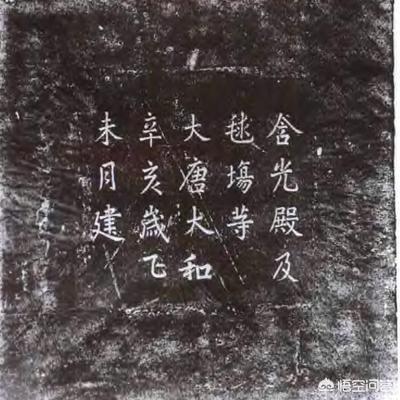 含光殿及
毬場等
大唐大和
辛亥歲乙
未月建
悟空问答